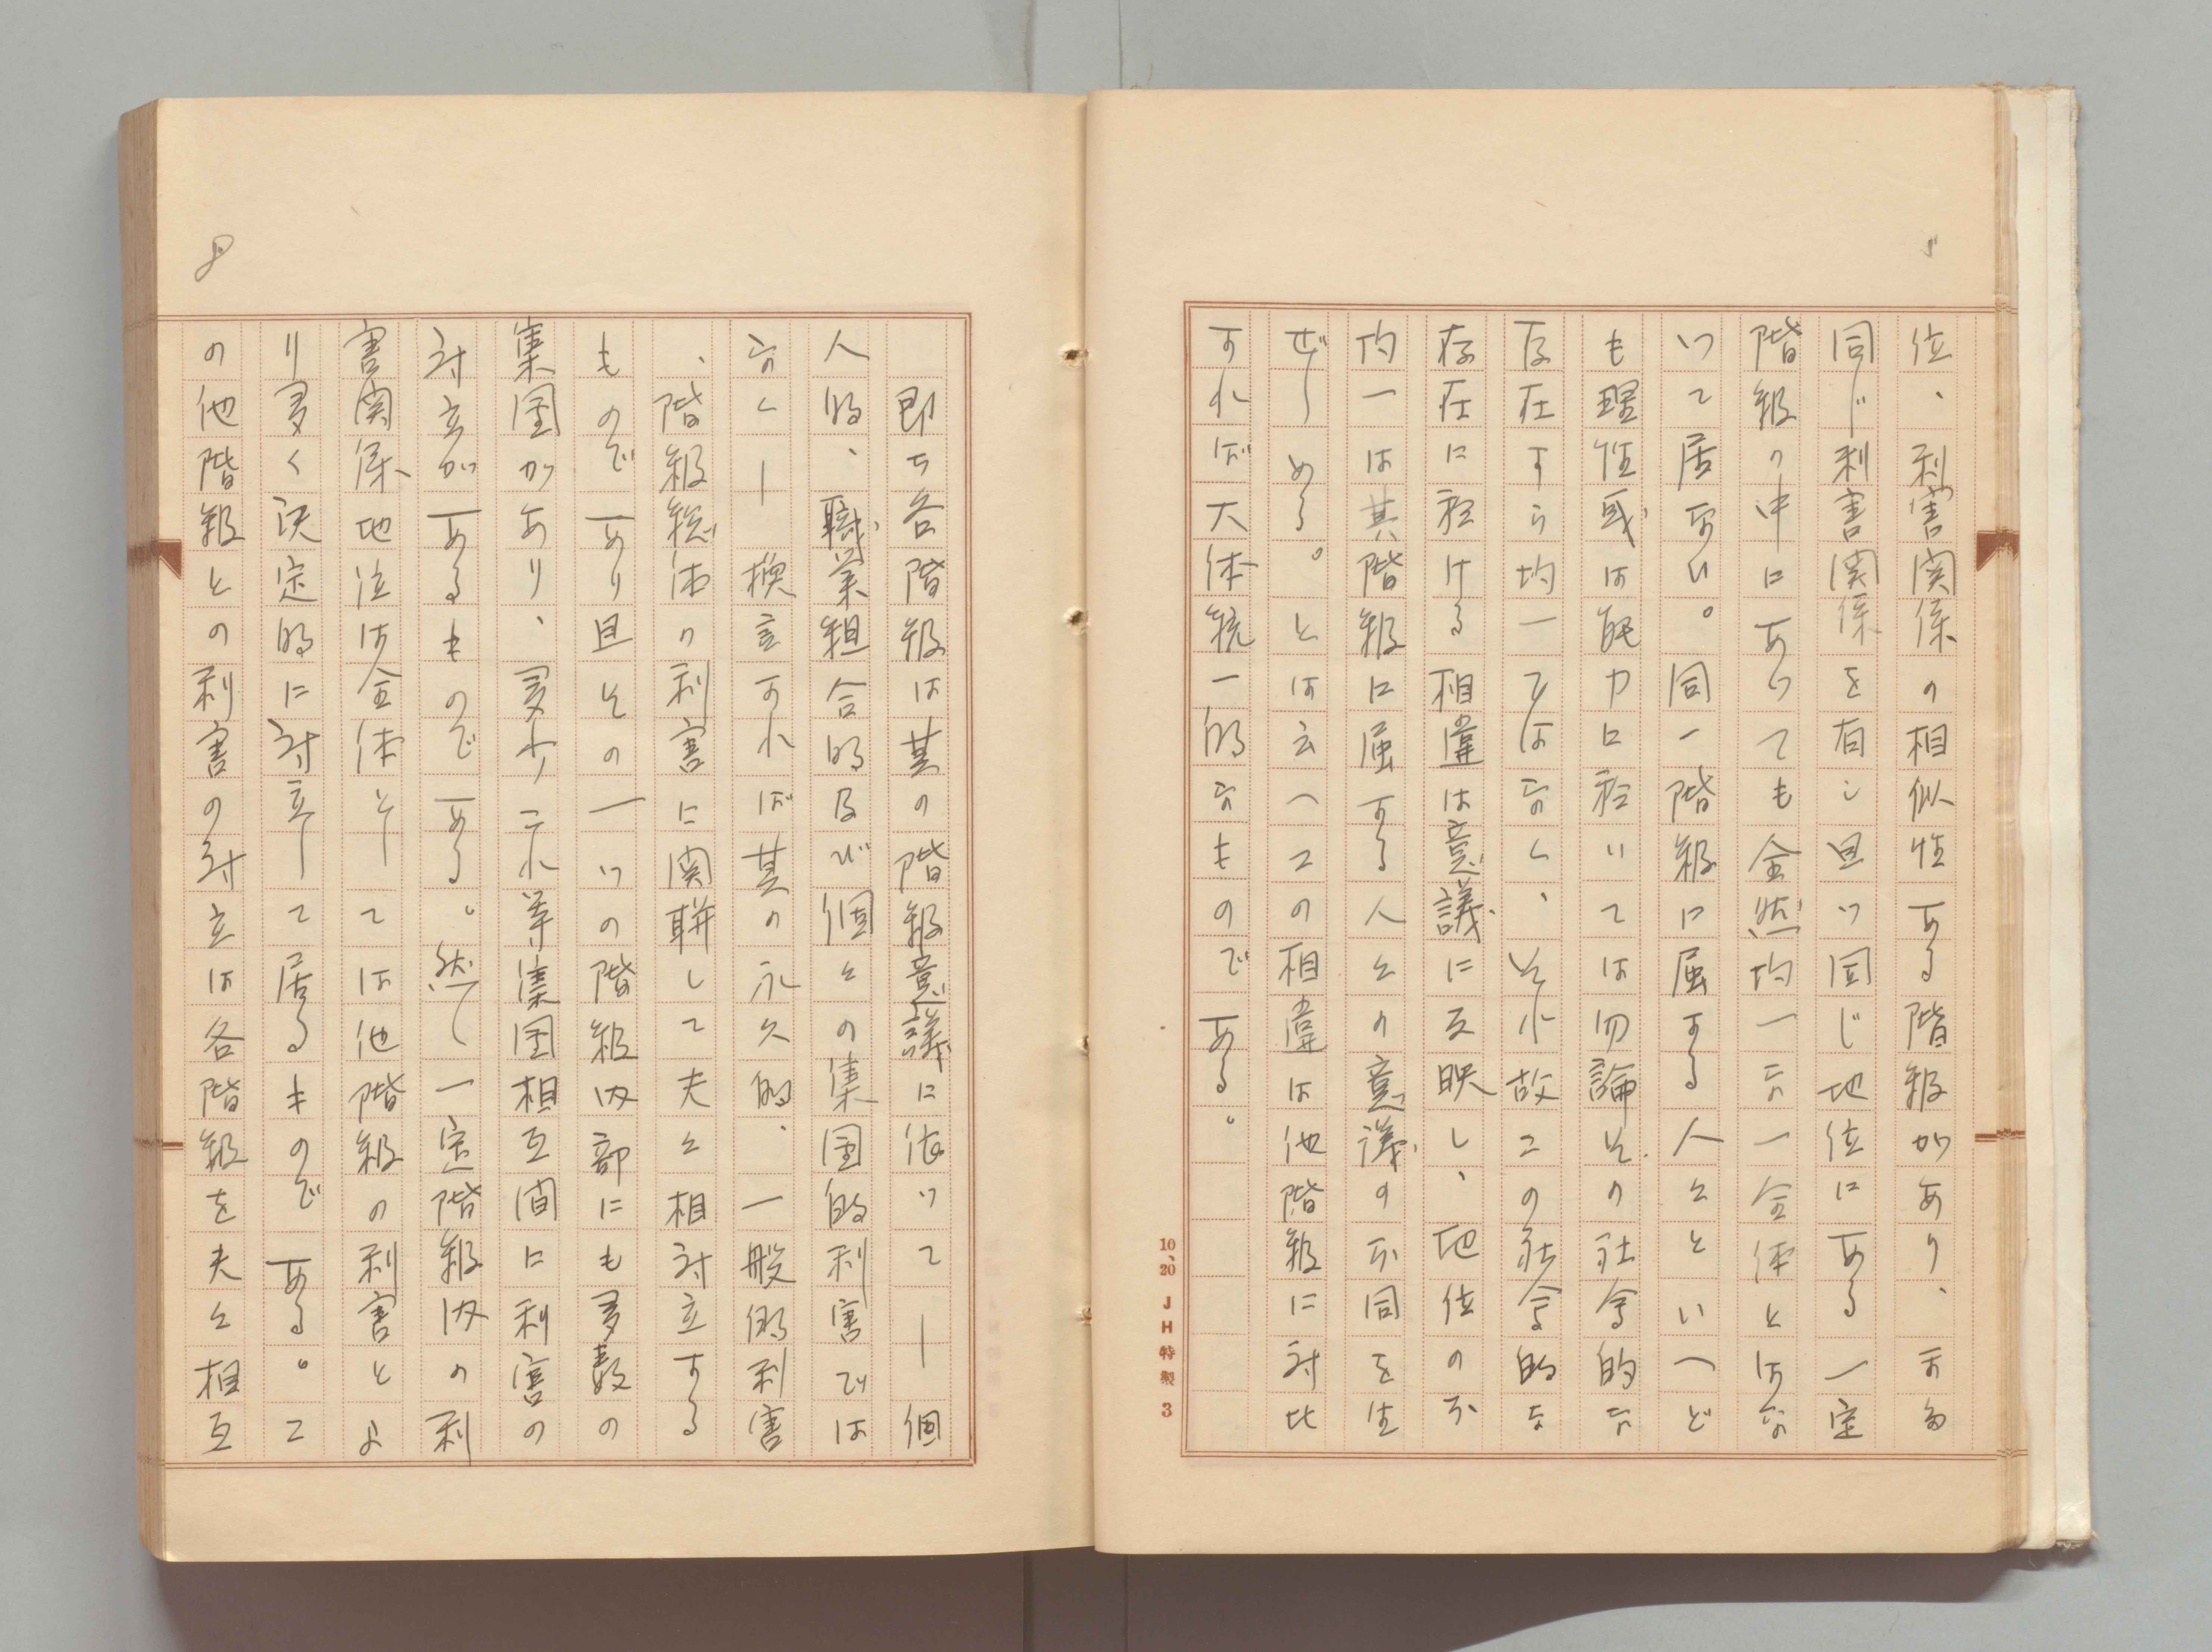 位、利害関係の相似性ある階級があり、可なり
同じ利害関係を有し且つ同じ地位にある一定
階級の中にあつても全然均一な一全体とはな
つて居ない。同一階級に屈する人々といへど
も理性或は能力に於いては勿論その社会的な
存在すら均一ではなく、それ故この社会的な
存在に於ける相違は意議に反映し、地位の不
均一は其階級に屈する人々の意議の不同を生
ぜしめる。とは云へこの相違は他階級に対比
すれば大体統一的なものである。
10、20 JH特製 3
即ち各階級は其の階級意議に依つて――個
人的、職業組合的及び個々の集団的利害では
なく――換言すれば其の永久的、一般的利害
、階級総体の利害に関聯して夫々相対立する
ものであり且その一つの階級内部にも多数の
集団があり、多少これ等集団相互間に利害の
対立があるものである。然し一定階級内の利
害関係地位は全体としては他階級の利害とよ
り多く決定的に対立して居るものである。こ
の他階級との利害の対立は各階級を夫々相互